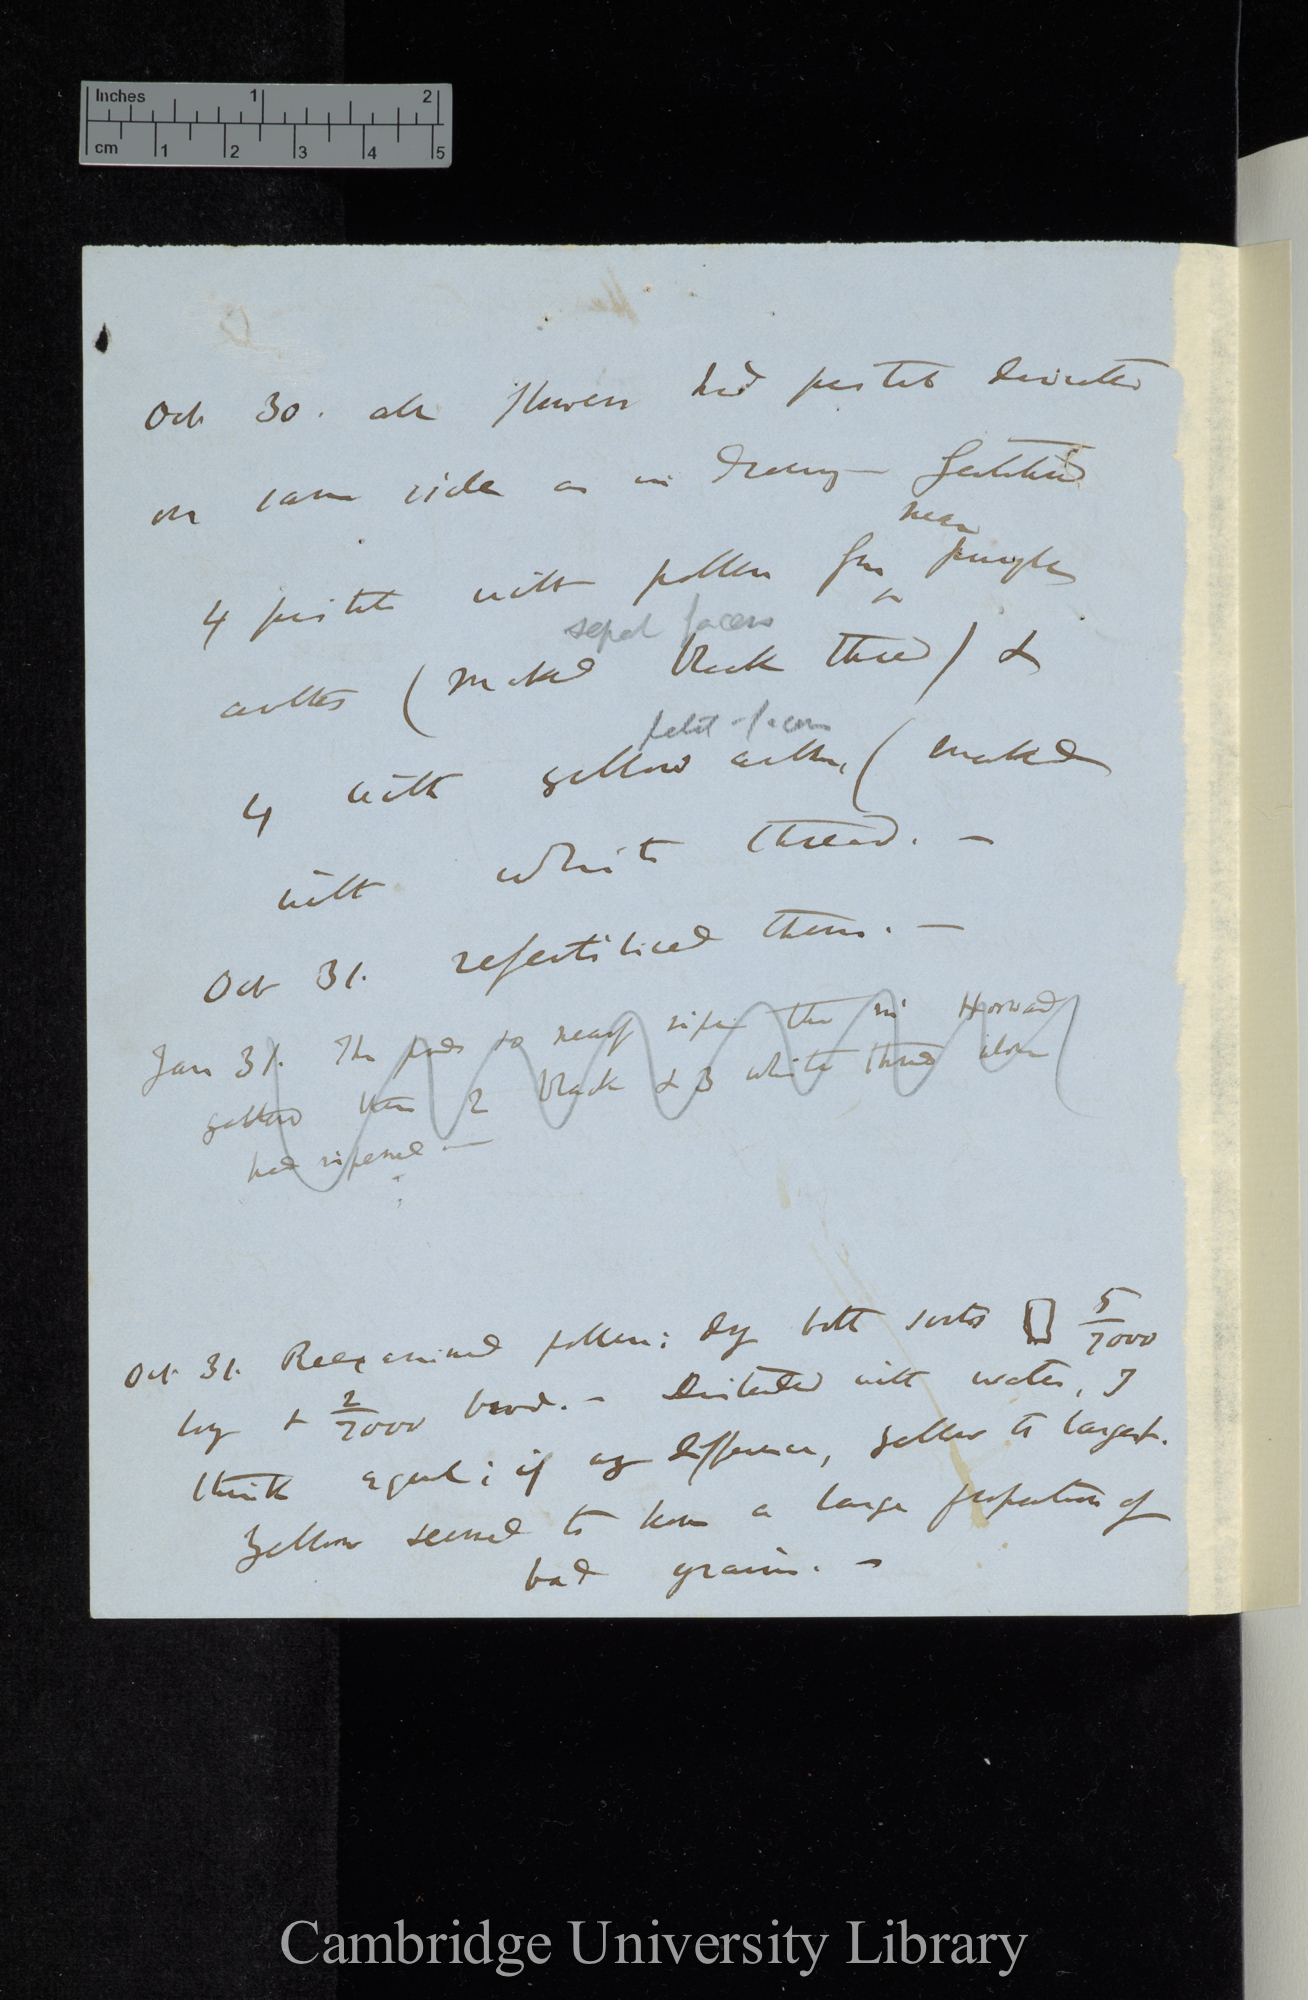 Inches 1 2
cm 1 2 3 4 5
Oct 30. all flowers had pistils directed
on same side as in drawing — fertilised
near
4 pistils with pollen from purple
sepal facers
anthers (marked black thread) &
petal-facers
4 with yellow anthers (marked
with white thread. —
Oct 31. refertilised them. —
Jan 31. The pods so nearly ripe that in
gathered them 2 black & 3 white thread alone
had ripened —
Oct. 31. Reexamined pollen: dry both sorts 5/7000
long & 2/7000 broad. — Distended with water, I
think equal; if any difference, yellow is largest.
Yellow seemed to have a large proportion of
bad grains. —
Cambridge University Library